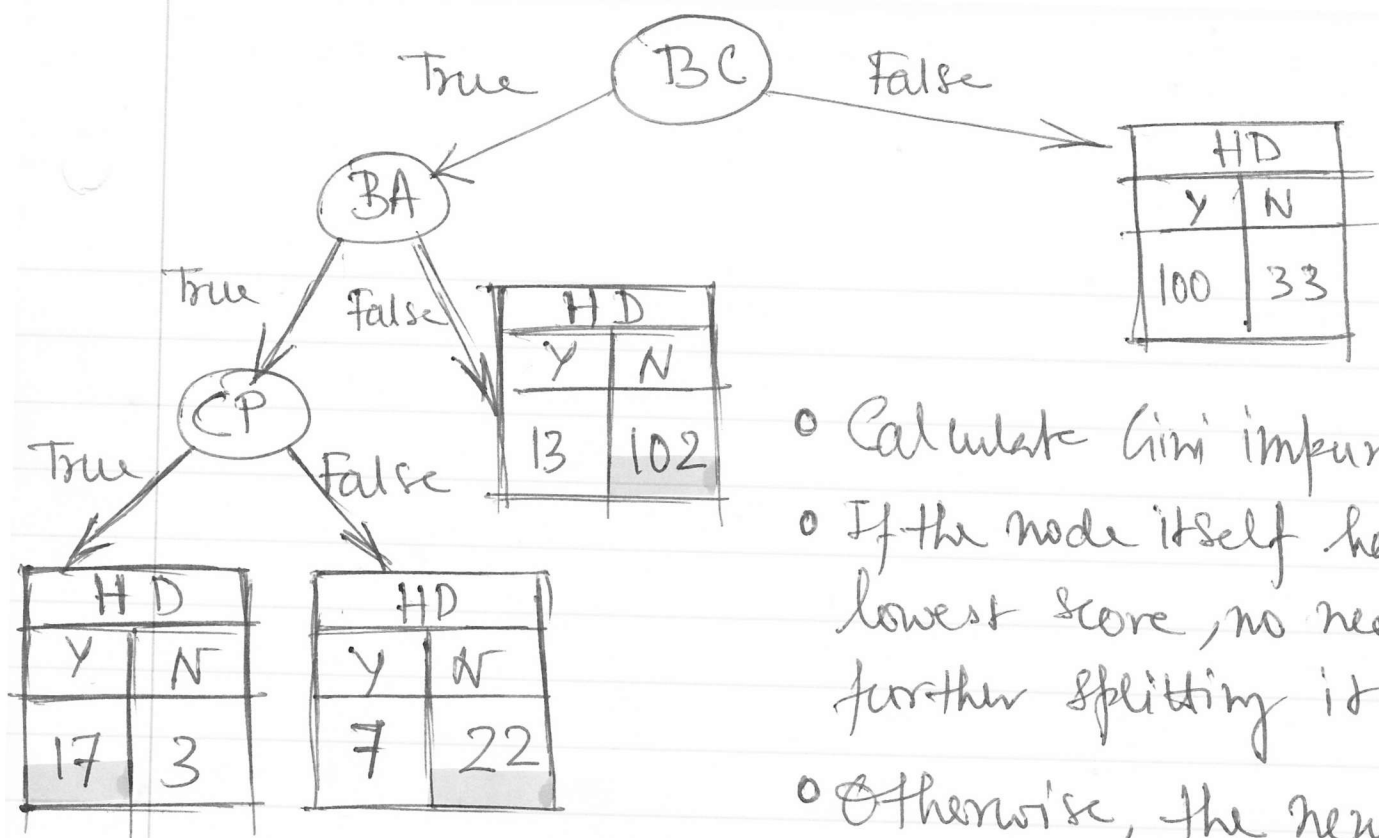 BC
True
False
BA
HD
Y N
100 33
True
False
HD
Y N
13 102
CP
True
False
HD
Y N
17 3
HD
Y N
7 22
• Calculate Gini
• If the node itself
lowest score, no
further splitting it
• Otherwise, the